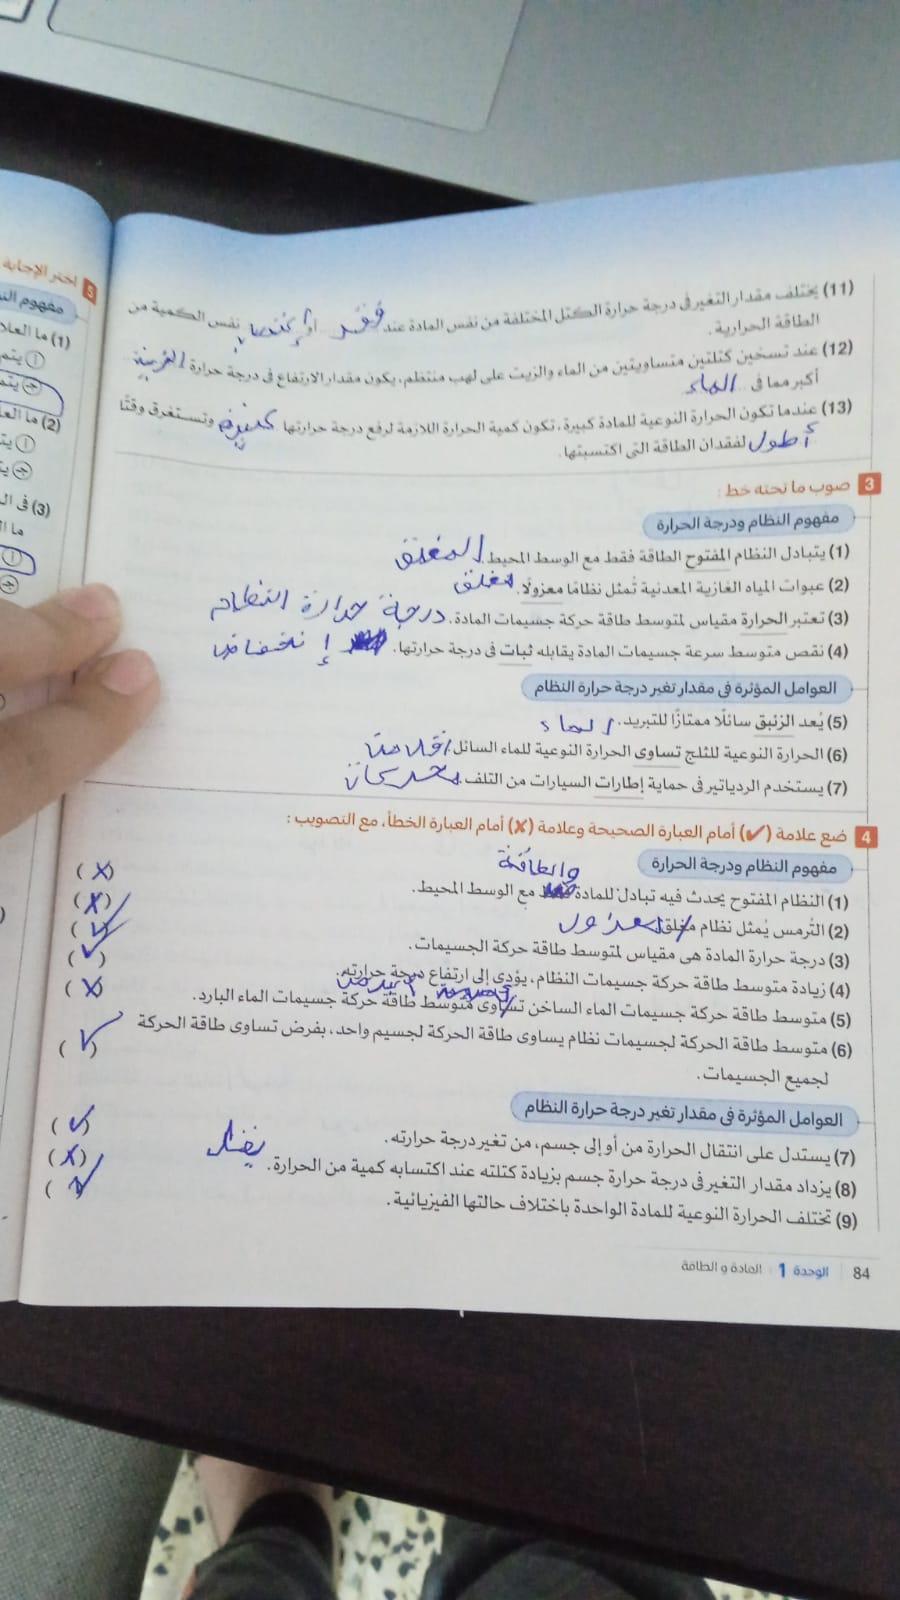 (11) يختلف مقدار التغير فى درجة حرارة الكتل المختلفة من نفس المادة عند فقد أو إكتساب نفس الكمية من
الطاقة الحرارية.
(12) عند تسخين كتلتين متساويتين من الماء والزيت على لهب منتظم، يكون مقدار الارتفاع فى درجة حرارة
أكبر مما فى الماء
(13) عندما تكون الحرارة النوعية للمادة كبيرة، تكون كمية الحرارة اللازمة لرفع درجة حرارتها كبيرة وتستغرق وقتًا
أطول لفقدان الطاقة التى اكتسبتها.
3 صوب ما تحته خط :
مفهوم النظام ودرجة الحرارة
(1) يتبادل النظام المفتوح الطاقة فقط مع الوسط المحيط. المغلق
(2) عبوات المياه الغازية المعدنية تُمثل نظامًا معزولًا. مغلق
(3) تعتبر الحرارة مقياس لمتوسط طاقة حركة جسيمات المادة. درجة حرارة النظام
(4) نقص متوسط سرعة جسيمات المادة يقابله ثبات فى درجة حرارتها. إنخفاض
العوامل المؤثرة فى مقدار تغير درجة حرارة النظام
(5) يُعد الزئبق سائلًا ممتازًا للتبريد. الماء
(6) الحرارة النوعية للثلج تساوى الحرارة النوعية للماء السائل. أقل من
(7) يستخدم الردياتير فى حماية إطارات السيارات من التلف. محركات
4 ضع علامة (✓) أمام العبارة الصحيحة وعلامة (✗) أمام العبارة الخطأ، مع التصويب :
مفهوم النظام ودرجة الحرارة
والطاقة
(1) النظام المفتوح يحدث فيه تبادل للمادة مع الوسط المحيط. (✗)
(2) الترمس يُمثل نظام مغلق. معزول (✗)
(3) درجة حرارة المادة هى مقياس لمتوسط طاقة حركة الجسيمات. (✓)
(4) زيادة متوسط طاقة حركة جسيمات النظام، يؤدى إلى ارتفاع درجة حرارته. (✓)
أكبر من
(5) متوسط طاقة حركة جسيمات الماء الساخن تساوى متوسط طاقة حركة جسيمات الماء البارد. (✗)
(6) متوسط طاقة الحركة لجسيمات نظام يساوى طاقة الحركة لجسيم واحد، بفرض تساوى طاقة الحركة
لجميع الجسيمات. (✓)
العوامل المؤثرة فى مقدار تغير درجة حرارة النظام
(7) يستدل على انتقال الحرارة من أو إلى جسم، من تغير درجة حرارته. (✓)
(8) يزداد مقدار التغير فى درجة حرارة جسم بزيادة كتلته عند اكتسابه كمية من الحرارة. يقل (✗)
(9) تختلف الحرارة النوعية للمادة الواحدة باختلاف حالتها الفيزيائية. (✓)
84 الوحدة 1 المادة و الطاقة
5 اختر الإجابة
(1) ما العلا
(2) ما الع
(3) فى ال